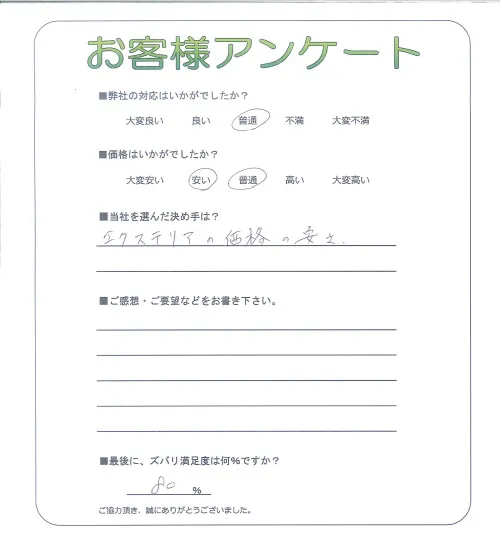 お客様アンケート
■弊社の対応はいかがでしたか？
大変良い 良い 普通 不満 大変不満
■価格はいかがでしたか？
大変安い 安い 普通 高い 大変高い
■当社を選んだ決め手は？
エクステリアの価格の安さ.
■ご感想・ご要望などをお書き下さい。
■最後に、ズバリ満足度は何％ですか？
80 %
ご協力頂き、誠にありがとうございました。